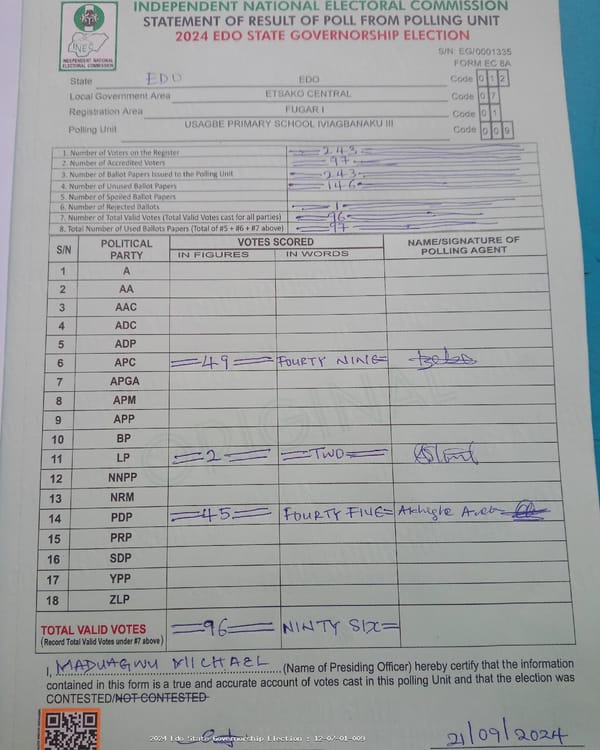 INDEPENDENT NATIONAL ELECTORAL COMMISSION
STATEMENT OF RESULT OF POLL FROM POLLING UNIT
2024 EDO STATE GOVERNORSHIP ELECTION
INEC
INDEPENDENT NATIONAL ELECTORAL COMMISSION
S/N: EG/0001335
FORM EC 8A
State EDO EDO Code 0 1 2
Local Government Area ETSAKO CENTRAL Code 0 7
Registration Area FUGAR I Code 0 1
Polling Unit USAGBE PRIMARY SCHOOL IVIAGBANAKU III Code 0 0 9
1. Number of Voters on the Register 243
2. Number of Accredited Voters 97
3. Number of Ballot Papers Issued to the Polling Unit 243
4. Number of Unused Ballot Papers 146
5. Number of Spoiled Ballot Papers
6. Number of Rejected Ballots 1
7. Number of Total Valid Votes (Total Valid Votes cast for all parties) 96
8. Total Number of Used Ballots Papers (Total of #5 + #6 + #7 above) 97
S/N POLITICAL PARTY VOTES SCORED NAME/SIGNATURE OF POLLING AGENT
IN FIGURES IN WORDS
1 A
2 AA
3 AAC
4 ADC
5 ADP
6 APC =49= FOURTY NINE=
7 APGA
8 APM
9 APP
10 BP
11 LP =2= =TWO=
12 NNPP
13 NRM
14 PDP =45= FOURTY FIVE=
15 PRP
16 SDP
17 YPP
18 ZLP
ORIGINAL
TOTAL VALID VOTES =96= NINTY SIX=
(Record Total Valid Votes under #7 above)
I, MADUAGWU MICHAEL (Name of Presiding Officer) hereby certify that the information
contained in this form is a true and accurate account of votes cast in this polling Unit and that the election was
CONTESTED/NOT CONTESTED
2024 Edo State Governorship Election : 12-07-01-009
21/09/2024